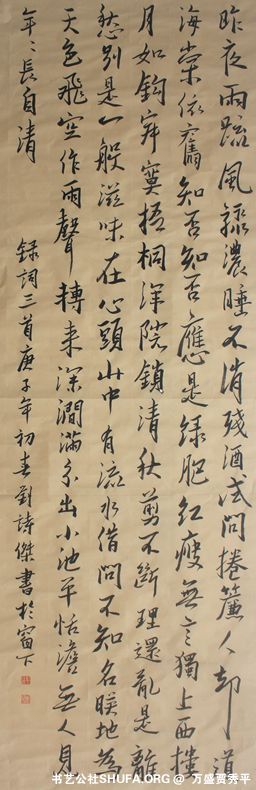 昨夜雨疏風驟濃睡不消殘酒試問捲簾人却道
海棠依舊知否知否應是緑肥紅瘦無言獨上西樓
月如鈎寂寞梧桐深院鎖清秋剪不斷理還亂是離
愁別是一般滋味在心頭山中有流水借問不知名映地為
天色飛空作雨聲轉來深澗滿分出小池平恬澹無人見
年〻長自清
録詞三首庚子年初春劉詩傑書於窗下
书艺公社SHUFA.ORG @ 万盛贾秀平